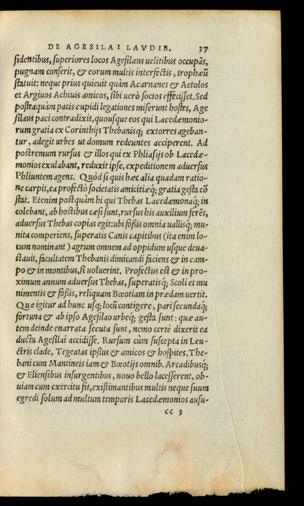 DE AGESILAI LAVDIB. 37
sidentibus, superiores locos Agesilaus uelitibus occupās,
pugnam conserit, & eorum multis interfectis, trophæū
statuit: neque prius quieuit quàm Acarnanes & Aetolos
et Argiuos Achiuis amicos, sibi uerò socios effecisset. Sed
postea quàm pacis cupidi legationes miserunt hostes, Age
silaus paci contradixit, quousque eos qui Lacedæmonio-
rum gratia ex Corinthijs Thebanisq; extorres ageban-
tur, adegit urbes ut domum redeuntes acciperent. Ad
postremum rursus & illos qui ex Phliasijs ob Lacedæ-
monios exulabant, reduxit ipse, expeditionem aduersus
Phliuntem agens. Quòd si quis hæc alia quadam ratio-
ne carpit, ea profectò societatis amicitiæq; gratia gesta cō
stat. Etenim postquàm hi qui Thebas Lacedæmonaq; in
colebant, ab hostibus cæsi sunt, rursus his auxilium ferēs,
aduersus Thebas copias egit: ubi fossis omnia uallisq; mu-
nita comperiens, superatis Canis capitibus (ita enim lo-
cum nominant) agrum omnem ad oppidum usque deua-
stauit, facultatem Thebanis dimicandi faciens & in cam-
po & in montibus, si uoluerint. Profectus est & in pro-
ximum annum aduersus Thebas, superatisq; Scoli et mu
nimentis & fossis, reliquam Bœotiam in prædam uertit.
Quæ igitur ad hunc usq; locū contigere, pari secundaq;
fortuna & ab ipso Agesilao urbeq; gesta sunt: quæ au-
tem deinde enarrata secuta sunt, nemo certè dixerit ea
ductu Agesilai accidisse. Rursum cùm suscepta in Leu-
ctris clade, Tegeatas ipsius & amicos & hospites, The-
bani cum Mantineis iam & Bœotijs omnib. Arcadibusq;
& Eliensibus insurgentibus, nouo bello lacesserent, ob-
uiam cum exercitu fit, existimantibus multis neque suum
egredi solum ad multum temporis Lacedæmonios ausu-
CC 3